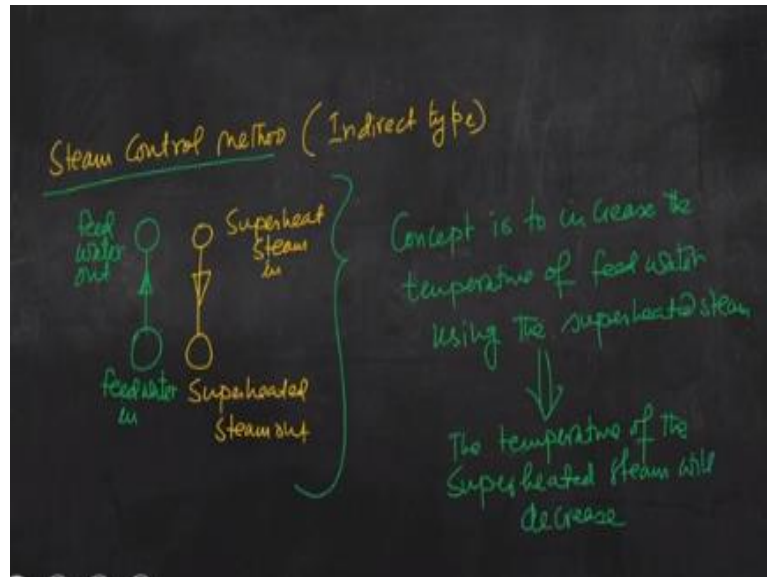 Steam Control method (Indirect type)
feed
water
out
Superheat
Steam
in
feed water
in
Superheated
Steam out
Concept is to increase the
temperature of feed water
using the superheated steam
The temperature of the
Superheated steam will
decrease